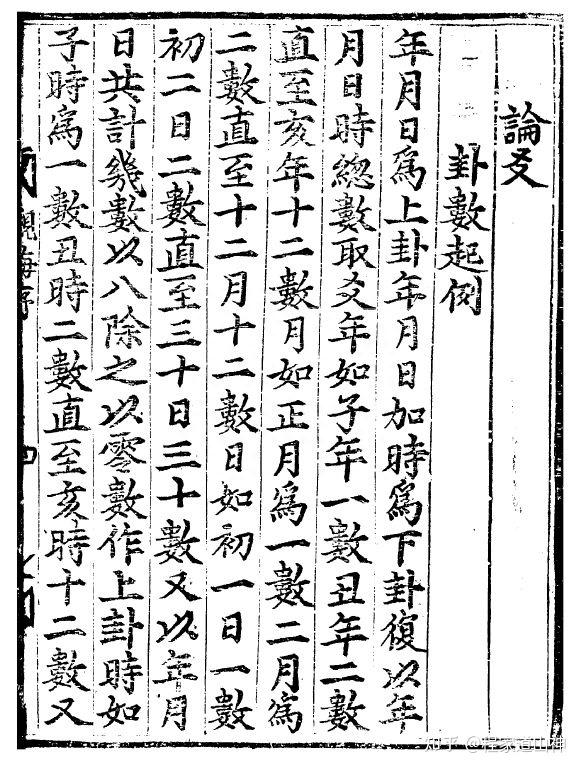 論爻
卦數起例
年月日爲上卦年月日加時爲下卦復以年
月日時總數取爻年如子年一數丑年二數
直至亥年十二數月如正月爲一數二月爲
二數直至十二月十二數日如初一日一數
初二日二數直至三十日三十數又以年月
日共計幾數以八除之以零數作上卦時如
子時爲一數丑時二數直至亥時十二數又
觀梅序
四
知乎